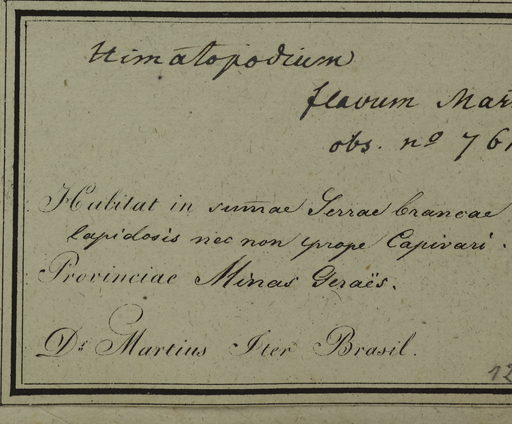 Himatopodium
flavum Mar
obs. nº 761
Habitat in sum̄ae Serrae brancae
lapidosis nec non prope Capivari.
Provinciae Minas Geraës.
Dr Martius Iter Brasil.
12